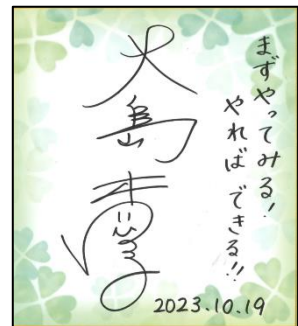 まずやってみる!
やればできる!!
大島
2023.10.19